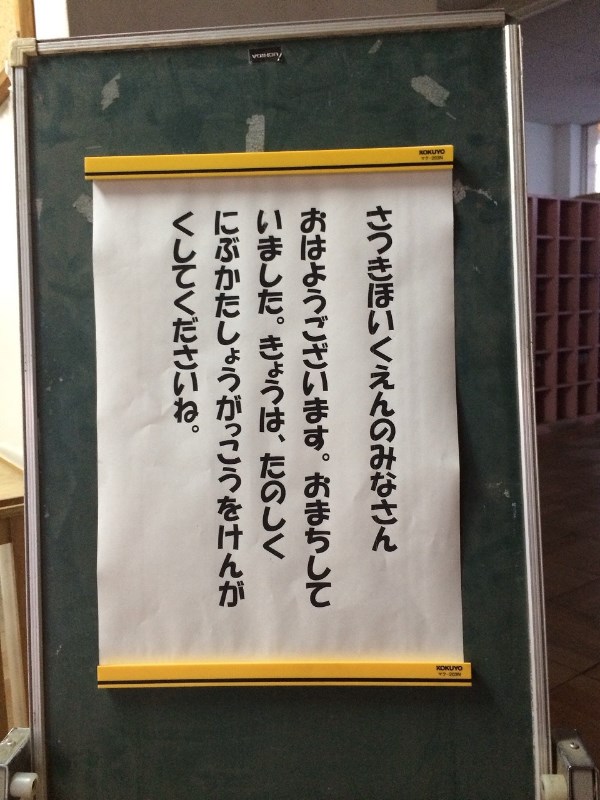 さつきほいくえんのみなさん
おはようございます。おまちして
いました。きょうは、たのしく
にぶかたしょうがっこうをけんが
くしてくださいね。
KOKUYO
KOKUYO